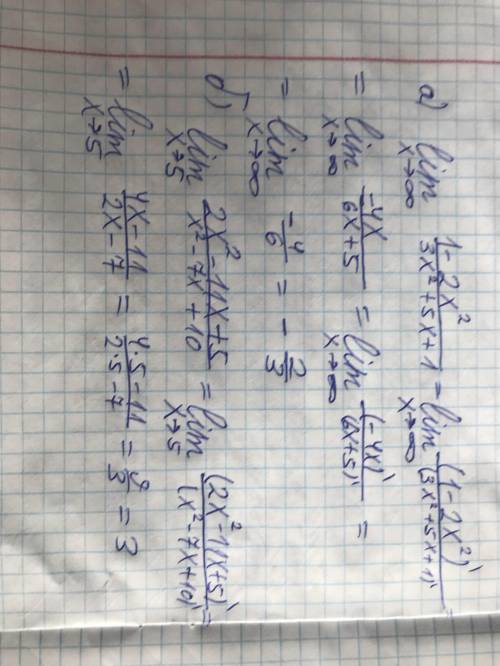 а) lim x→∞ (1-2x²)/(3x²+5x+1) = lim x→∞ (1-2x²)'/(3x²+5x+1)' =
= lim x→∞ -4x/(6x+5) = lim x→∞ (-4x)'/(6x+5)' =
= lim x→∞ -4/6 = -2/3
б) lim x→5 (2x²-11x+5)/(x²-7x+10) = lim x→5 (2x²-11x+5)'/(x²-7x+10)' =
= lim x→5 (4x-11)/(2x-7) = (4·5-11)/(2·5-7) = 9/3 = 3